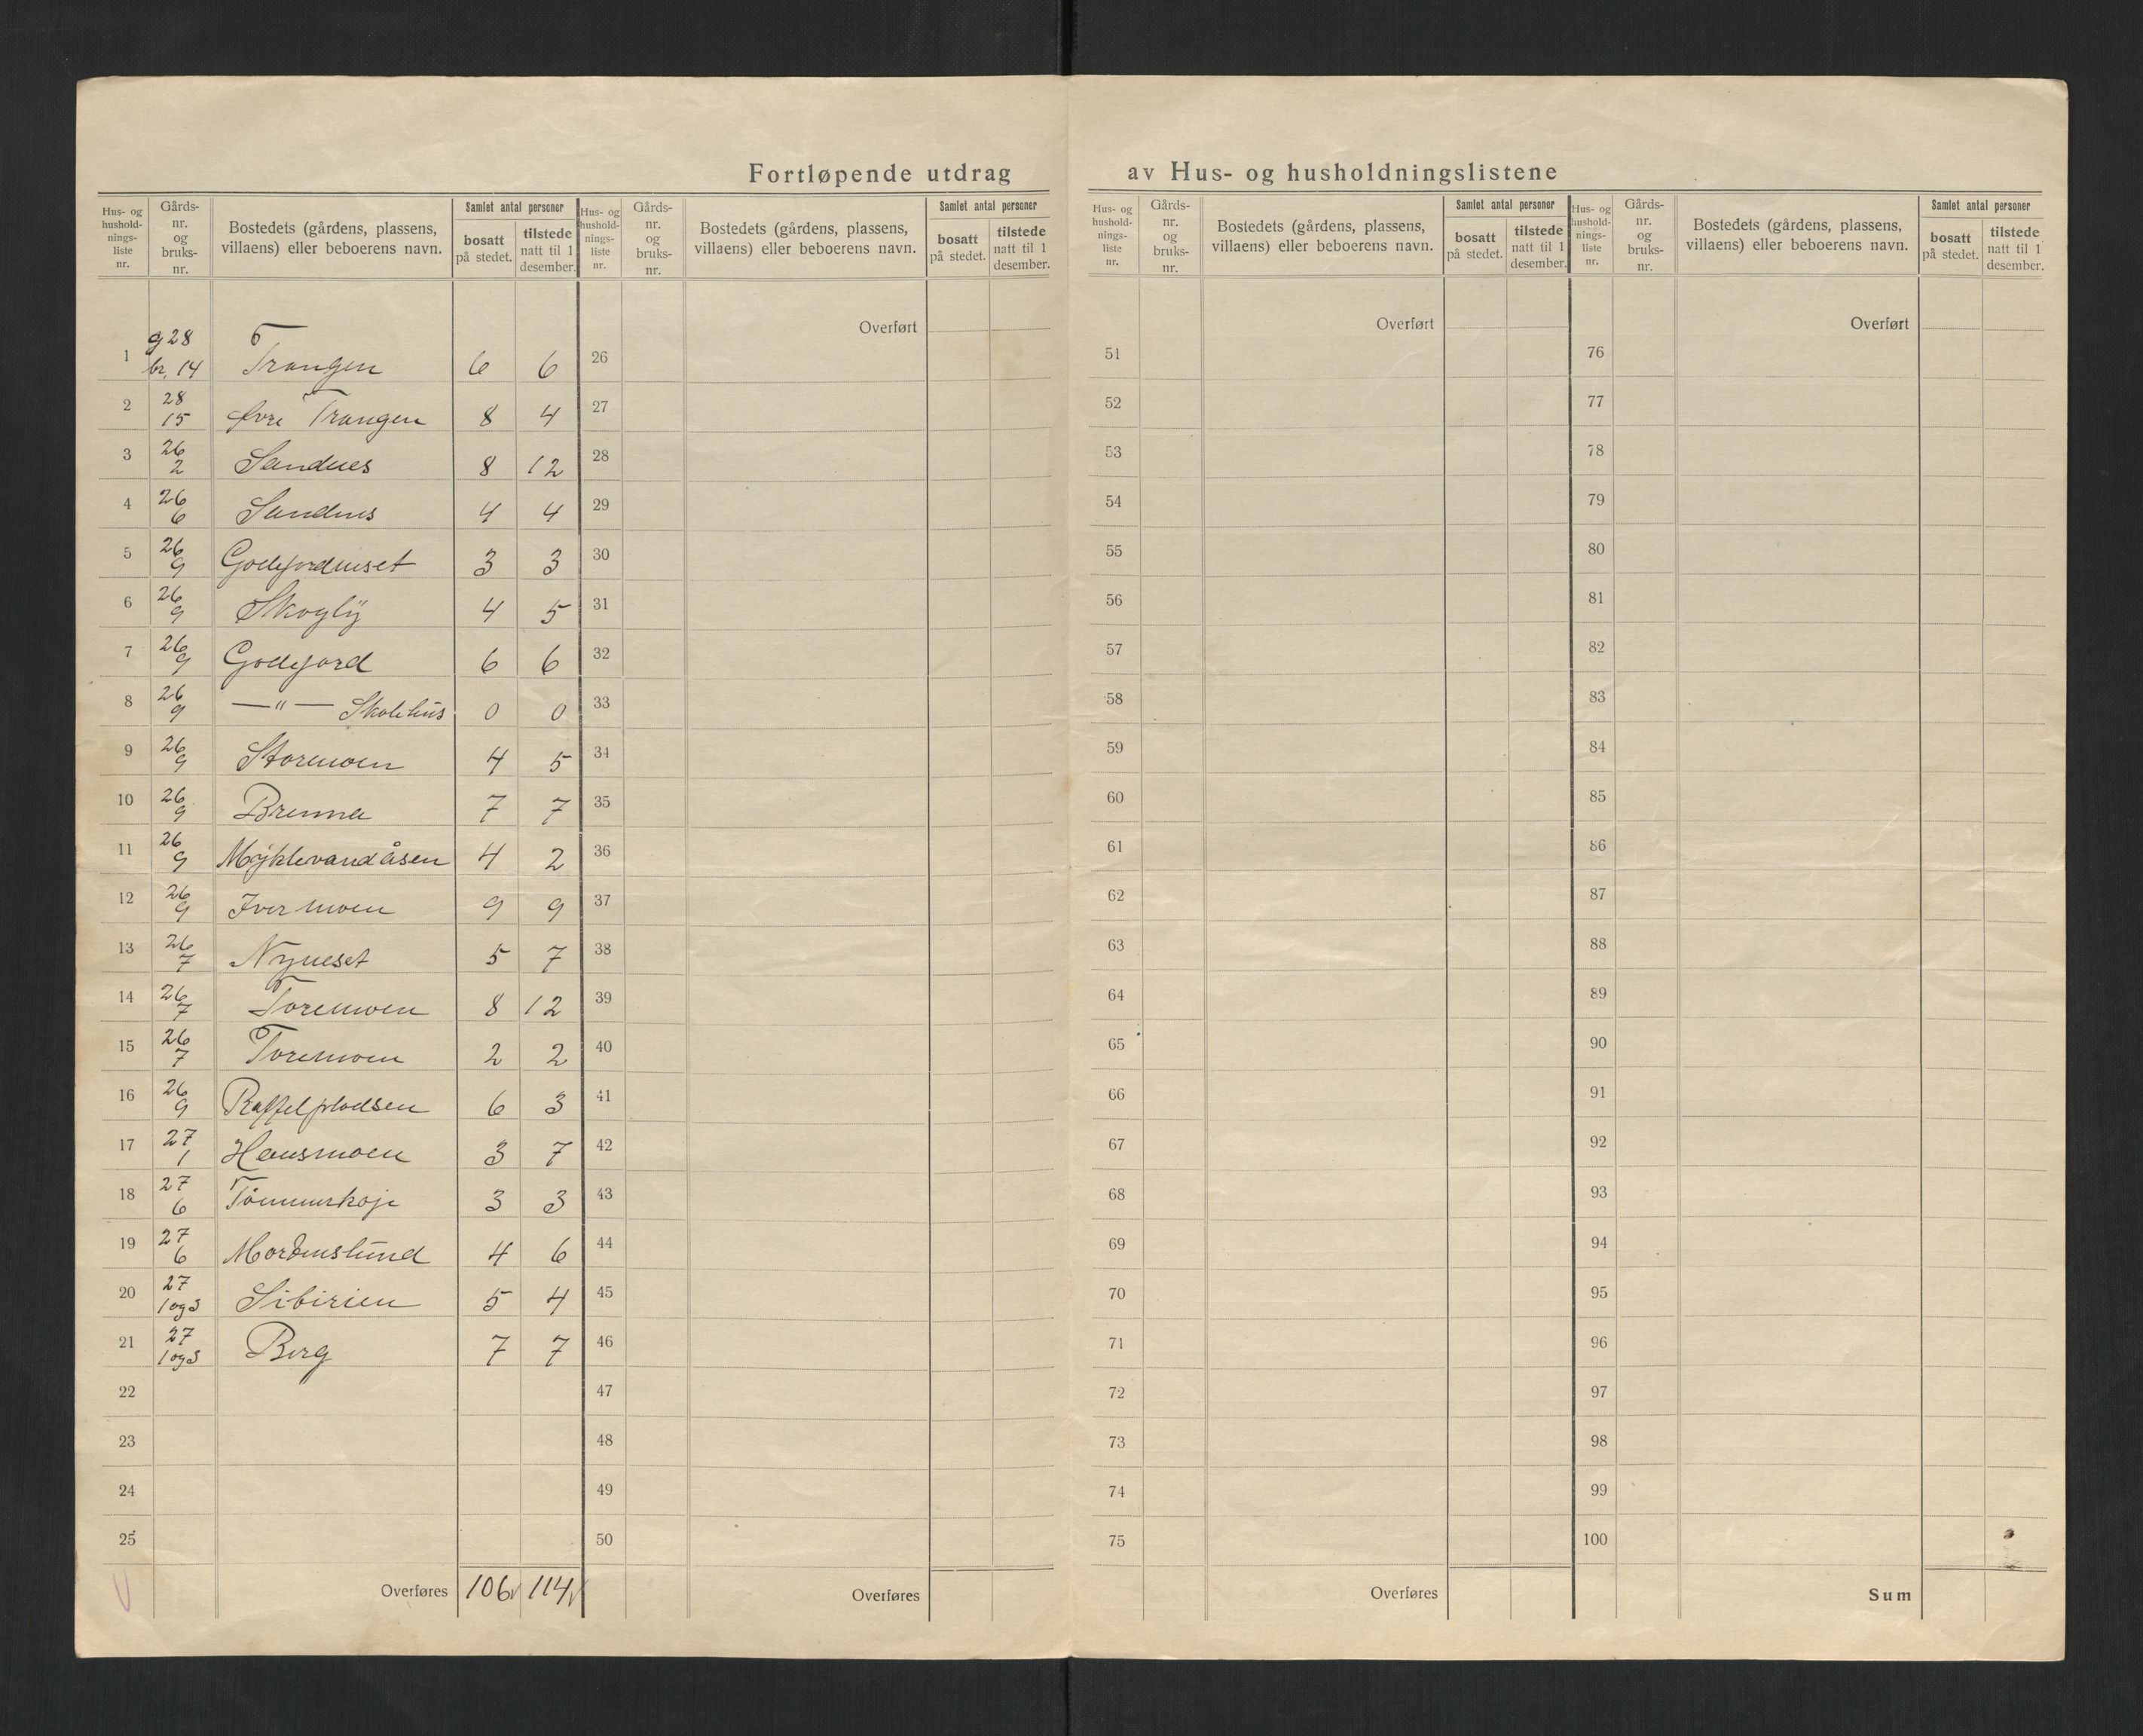 Fortløpende utdrag av Hus- og husholdningslistene
Hus- og hushold-nings-liste nr. | Gårds-nr. og bruks-nr. | Bostedets (gårdens, plassens, villaens) eller beboerens navn. | Samlet antal personer | bosatt på stedet. | tilstede natt til 1 desember.
1 | g 28 br. 14 | Trangen | 6 | 6
2 | 28 15 | Øvre Trangen | 8 | 4
3 | 26 2 | Sandnes | 8 | 12
4 | 26 6 | Sandnes | 4 | 4
5 | 26 9 | Godejordneset | 3 | 3
6 | 26 9 | Skoglÿ | 4 | 5
7 | 26 9 | Godejord | 6 | 6
8 | 26 9 | —"— Skolehus | 0 | 0
9 | 26 9 | Storemoen | 4 | 5
10 | 26 9 | Brenna | 7 | 7
11 | 26 9 | Mÿklevandåsen | 4 | 2
12 | 26 9 | Ivermoen | 9 | 9
13 | 26 7 | Nyneset | 5 | 7
14 | 26 7 | Toremoen | 8 | 12
15 | 26 7 | Toremoen | 2 | 2
16 | 26 9 | 6 | 3
17 | 27 1 | Hansmoen | 3 | 7
18 | 27 6 | 3 | 3
19 | 27 6 | 4 | 6
20 | 27 1 og 3 | Sibirien | 5 | 4
21 | 27 1 og 3 | Berg | 7 | 7
22
23
24
25
Overføres | 106 | 114
Hus- og hushold-nings-liste nr. | Gårds-nr. og bruks-nr. | Bostedets (gårdens, plassens, villaens) eller beboerens navn. | Samlet antal personer | bosatt på stedet. | tilstede natt til 1 desember.
Overført
26
27
28
29
30
31
32
33
34
35
36
37
38
39
40
41
42
43
44
45
46
47
48
49
50
Overføres
Hus- og hushold-nings-liste nr. | Gårds-nr. og bruks-nr. | Bostedets (gårdens, plassens, villaens) eller beboerens navn. | Samlet antal personer | bosatt på stedet. | tilstede natt til 1 desember.
Overført
51
52
53
54
55
56
57
58
59
60
61
62
63
64
65
66
67
68
69
70
71
72
73
74
75
Overføres
Hus- og hushold-nings-liste nr. | Gårds-nr. og bruks-nr. | Bostedets (gårdens, plassens, villaens) eller beboerens navn. | Samlet antal personer | bosatt på stedet. | tilstede natt til 1 desember.
Overført
76
77
78
79
80
81
82
83
84
85
86
87
88
89
90
91
92
93
94
95
96
97
98
99
100
Sum